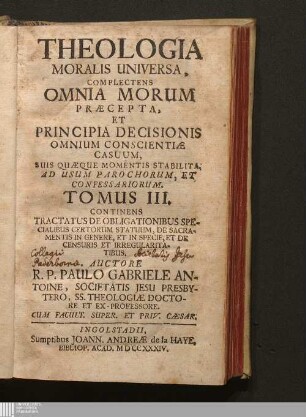 THEOLOGIA
MORALIS UNIVERSA,
COMPLECTENS
OMNIA MORUM
PRÆCEPTA,
ET
PRINCIPIA DECISIONIS
OMNIUM CONSCIENTIÆ
CASUUM,
SUIS QUÆQUE MOMENTIS STABILITA,
AD USUM PAROCHORUM, ET
CONFESSARIORUM.
TOMUS III.
CONTINENS
TRACTATUS DE OBLIGATIONIBUS SPE-
CIALIBUS CERTORUM STATUUM, DE SACRA-
MENTIS IN GENERE, ET IN SPECIE, ET DE
CENSURIS ET IRREGULARITA-
TIBUS,
Collegii
Paderbornæ
AUCTORE
R. P. PAULO GABRIELE AN-
TOINE, SOCIETATIS JESU PRESBY-
TERO, SS. THEOLOGIÆ DOCTO-
RE ET EX-PROFESSORE.
CUM FACULT. SUPER. ET PRIV. CÆSAR.
INGOLSTADII,
Sumptibus JOANN. ANDREÆ de la HAYE,
BIBLIOP. ACAD. MDCCXXXIV.